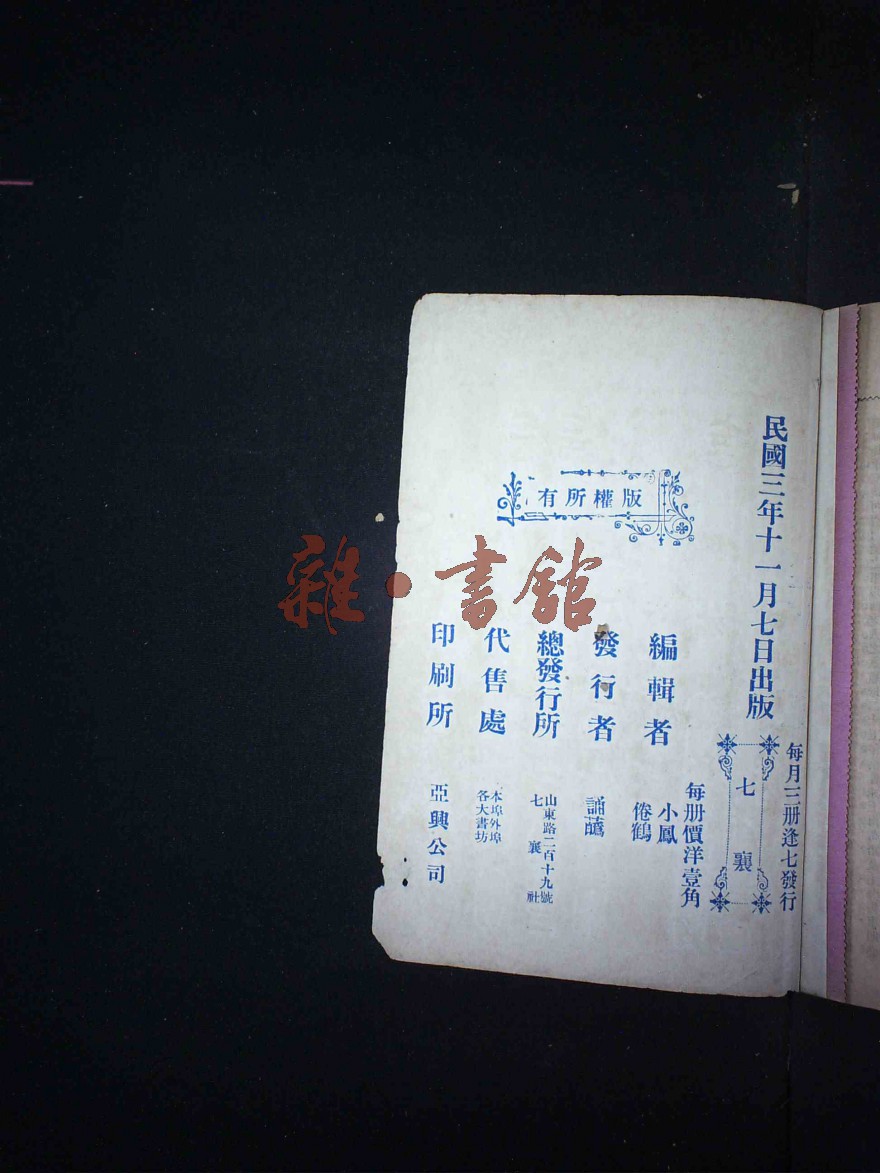 民國三年十一月七日出版
每月三册逢七發行
七襄
每册價洋壹角
版權所有
編輯者
小鳳
倦鶴
發行者
誦蘸
總發行所
山東路二百十九號
七襄社
代售處
本埠外埠
各大書坊
印刷所
亞興公司
雜·書舘